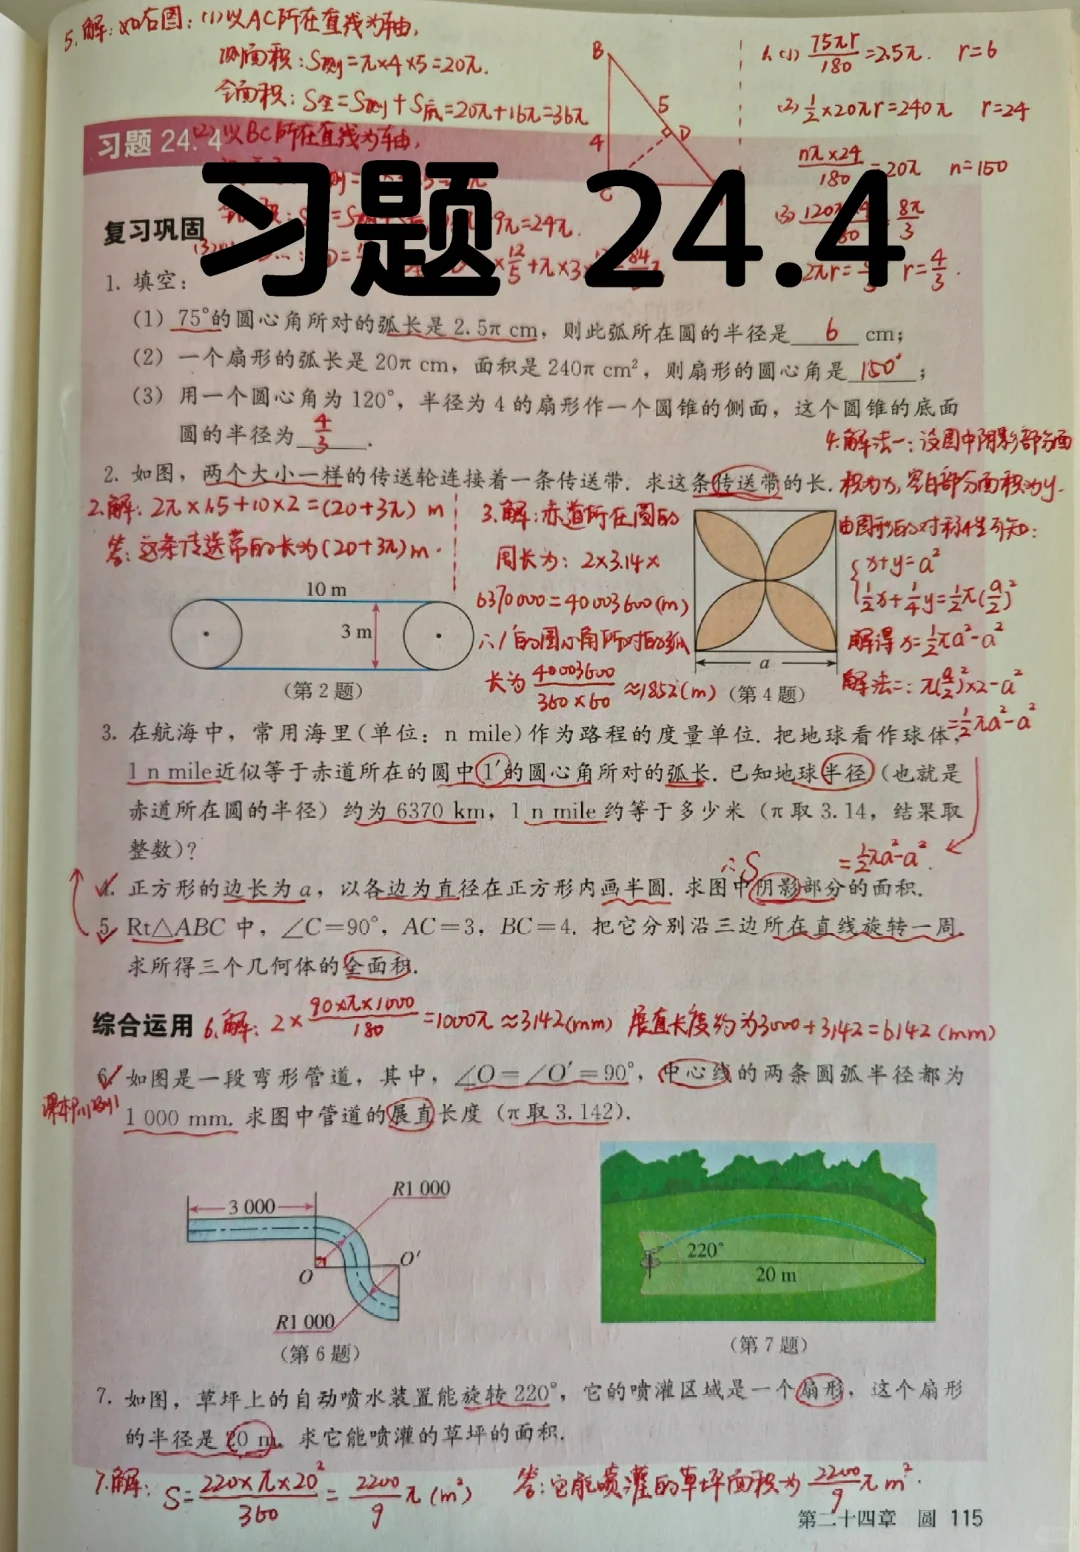 5.解：如右图：(1)以AC所在直线为轴，
侧面积：S侧=π×4×5=20π.
全面积：S全=S侧+S底=20π+16π=36π
(2)以BC所在直线为轴，
9π=24π.
B
5
D
4
C
1.(1) 75πr/180=2.5π. r=6
(2) 1/2×20πr=240π r=24
nπ×24/180=20π n=150
8π/3
2πr= r=4/3.
习题 24.4
习题 24.4
复习巩固
1. 填空：
(1) 75°的圆心角所对的弧长是2.5π cm，则此弧所在圆的半径是 6 cm；
(2) 一个扇形的弧长是20π cm，面积是240π cm²，则扇形的圆心角是 150° ；
(3) 用一个圆心角为120°，半径为4的扇形作一个圆锥的侧面，这个圆锥的底面
圆的半径为 4/3 .
2. 如图，两个大小一样的传送轮连接着一条传送带. 求这条传送带的长.
2.解：2π×1.5+10×2=(20+3π) m
答：这条传送带的长为(20+3π)m.
10 m
3 m
(第2题)
3.解：赤道所在圆的
周长为：2×3.14×
6370000=40003600(m)
∴1′的圆心角所对的弧
长为 40003600/360×60 ≈1852(m)
a
(第4题)
4.解法一：设图中阴影部分面
积为x，空白部分面积为y.
由图形的对称性可知：
x+y=a²
1/2x+1/4y=1/2π(a/2)²
解得x=1/2πa²-a²
解法二：π(a/2)²×2-a²
=1/2πa²-a²
3. 在航海中，常用海里(单位：n mile)作为路程的度量单位. 把地球看作球体，
1 n mile近似等于赤道所在的圆中1′的圆心角所对的弧长. 已知地球半径(也就是
赤道所在圆的半径) 约为 6370 km，1 n mile 约等于多少米 (π取3.14，结果取
整数)?
∴S =1/2πa²-a².
4. 正方形的边长为a，以各边为直径在正方形内画半圆. 求图中阴影部分的面积.
5. Rt△ABC中，∠C=90°，AC=3，BC=4. 把它分别沿三边所在直线旋转一周，
求所得三个几何体的全面积.
综合运用
6.解：2×90×π×1000/180=1000π≈3142(mm) 展直长度约为3000+3142=6142(mm)
6. 如图是一段弯形管道，其中，∠O=∠O′=90°，中心线的两条圆弧半径都为
1 000 mm. 求图中管道的展直长度 (π取3.142).
3 000
R1 000
O
O′
R1 000
(第6题)
220°
20 m
(第7题)
7. 如图，草坪上的自动喷水装置能旋转220°，它的喷灌区域是一个扇形，这个扇形
的半径是20 m. 求它能喷灌的草坪的面积.
7.解：S=220×π×20²/360=2200/9π(m²) 答：它能喷灌的草坪面积为2200/9πm².
第二十四章 圆 115